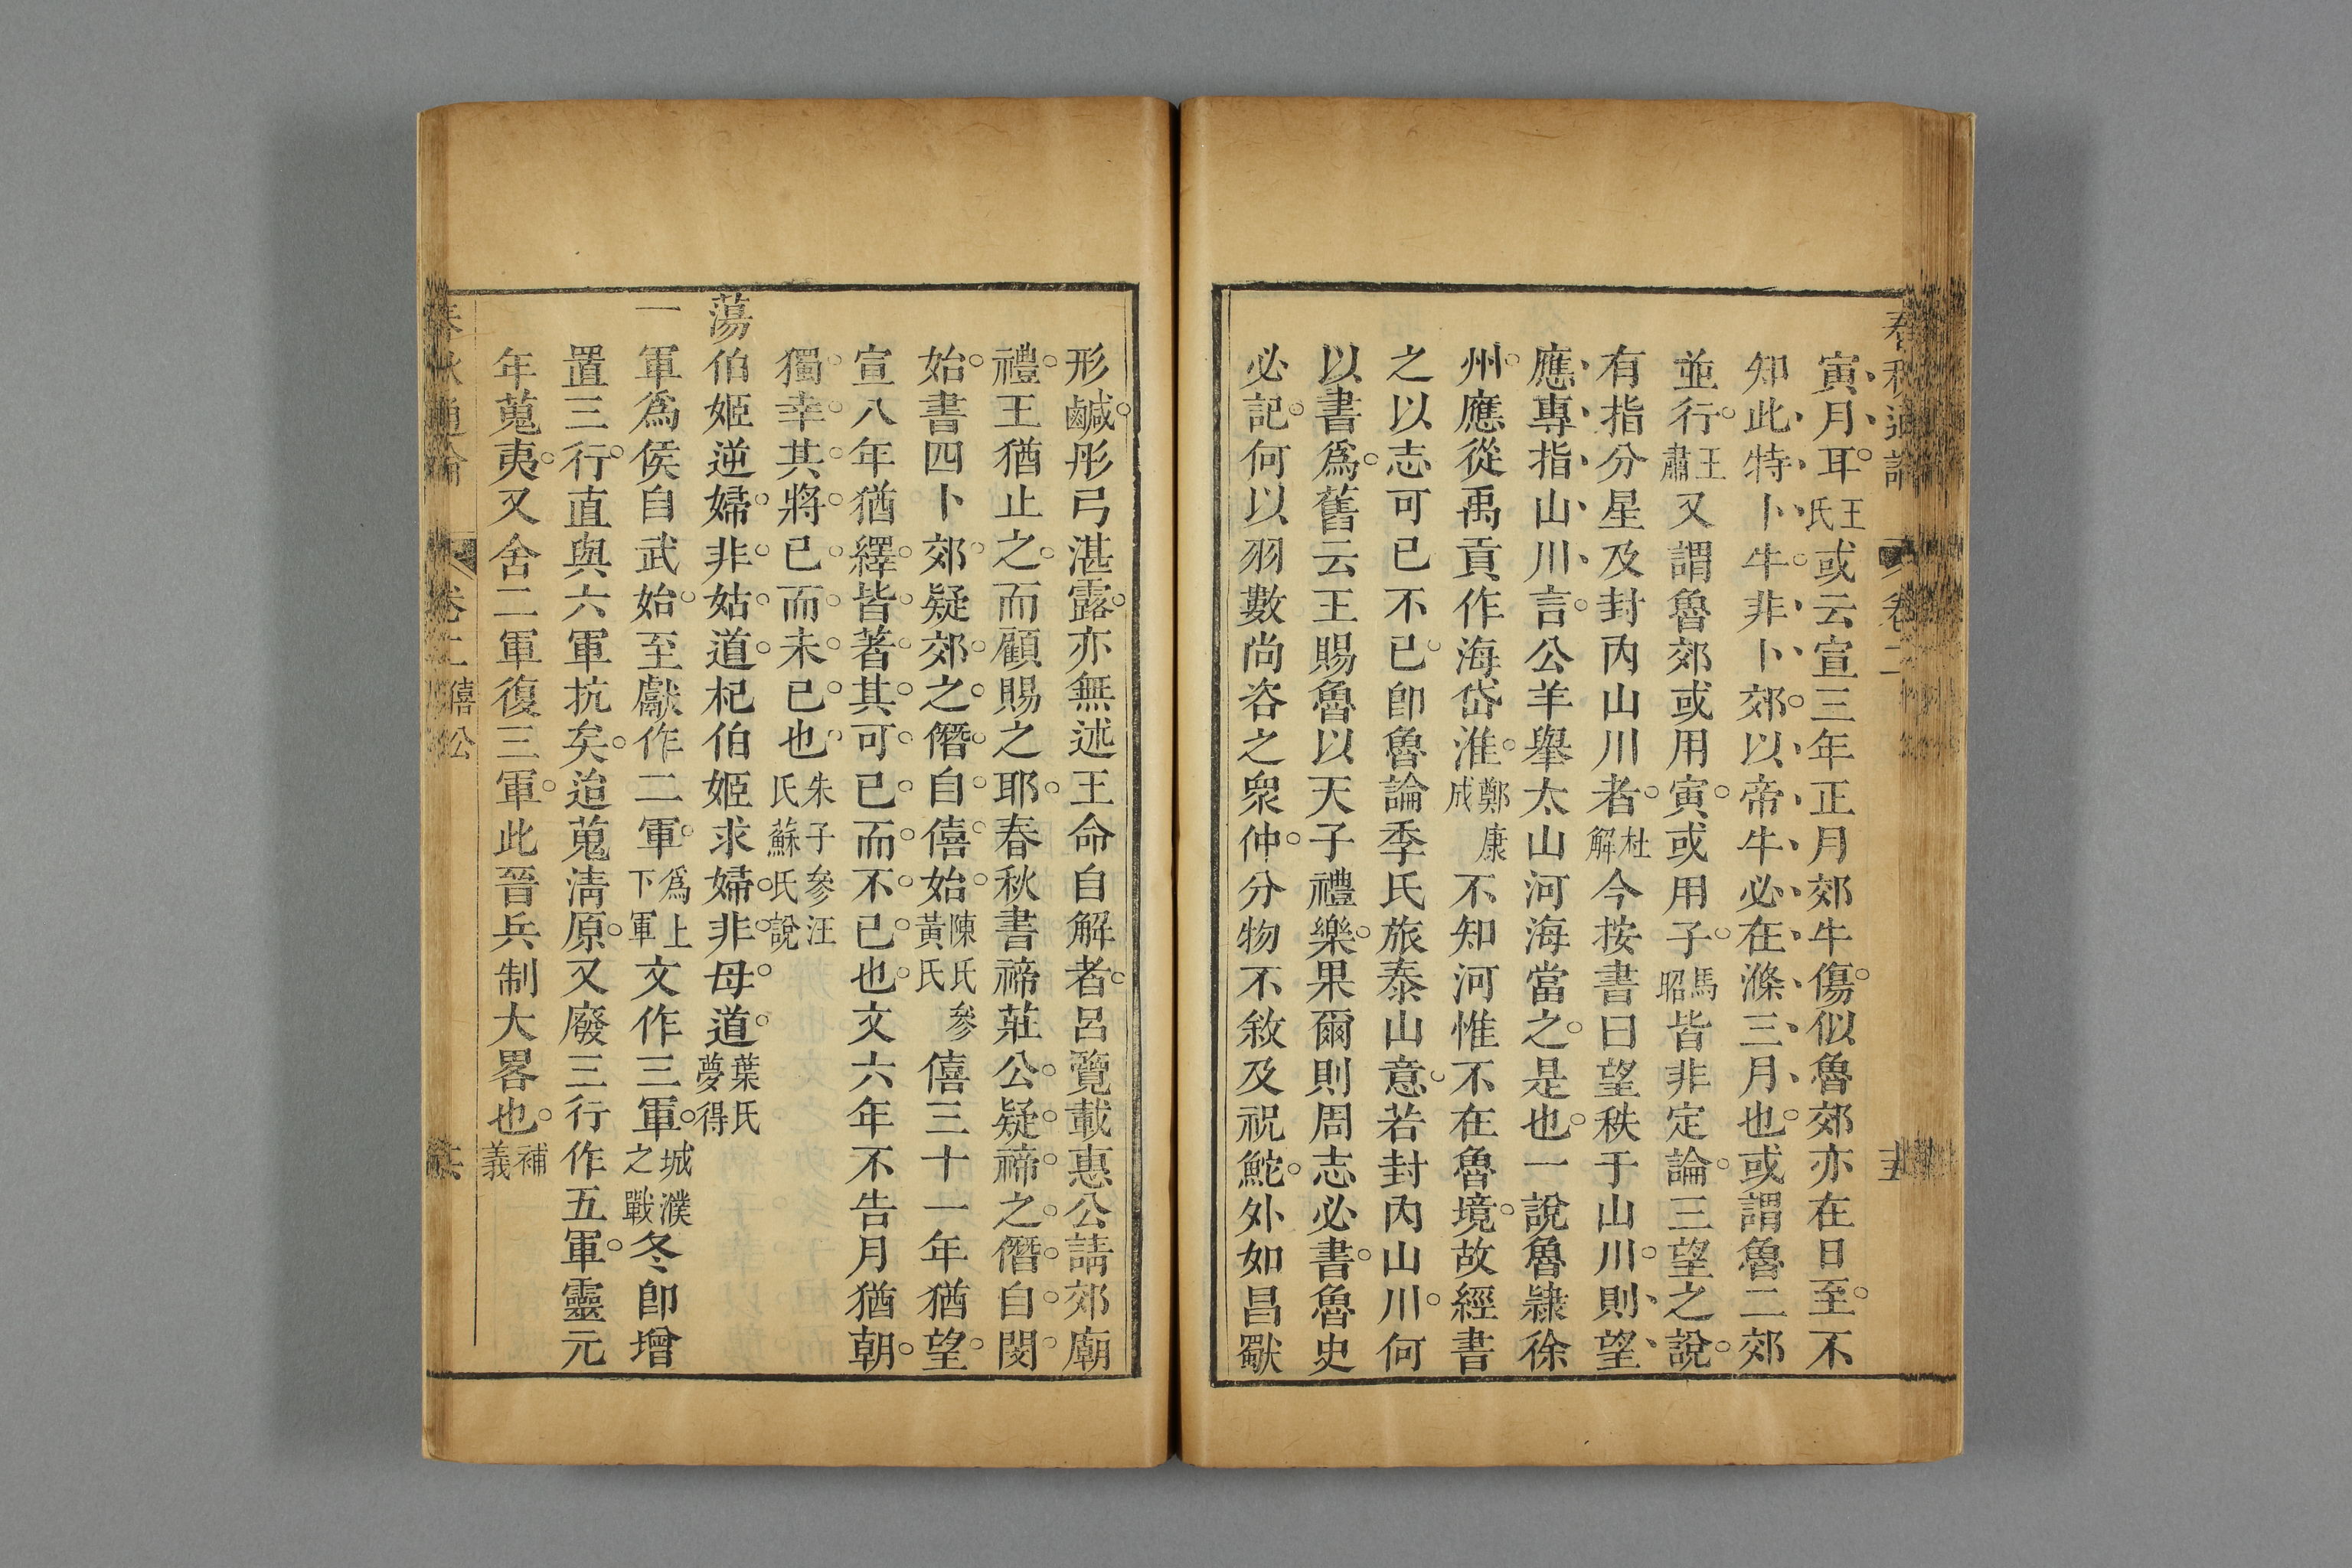 春秋通論 卷二 五
寅月耳王氏或云宣三年正月郊牛傷似魯郊亦在日至不
知此特卜牛非卜郊以帝牛必在滌三月也或謂魯二郊
並行王肅又謂魯郊或用寅或用子馬昭皆非定論三望之說
有指分星及封內山川者杜解今按書曰望秩于山川則望
應專指山川言公羊舉太山河海當之是也一說魯隷徐
州應從禹貢作海岱淮鄭康成不知河惟不在魯境故經書
之以志可已不已卽魯論季氏旅泰山意若封內山川何
以書爲舊云王賜魯以天子禮樂果爾則周志必書魯史
必記何以羽數尚咨之衆仲分物不敘及祝鮀外如昌歜
形鹹彤弓湛露亦無述王命自解者呂覽載惠公請郊廟
禮王猶止之而顧賜之耶春秋書禘莊公疑禘之僭自閔
始書四卜郊疑郊之僭自僖始陳氏參黃氏僖三十一年猶望
宣八年猶繹皆著其可已而不已也文六年不告月猶朝
獨幸其將已而未已也朱子參汪氏蘇氏說
蕩伯姬逆婦非姑道杞伯姬求婦非母道葉氏夢得
一軍爲侯自武始至獻作二軍爲上下軍文作三軍城濮之戰冬卽增
置三行直與六軍抗矣迨蒐淸原又廢三行作五軍靈元
年蒐夷又舍二軍復三軍此晉兵制大畧也補義
春秋通論 卷二 僖公